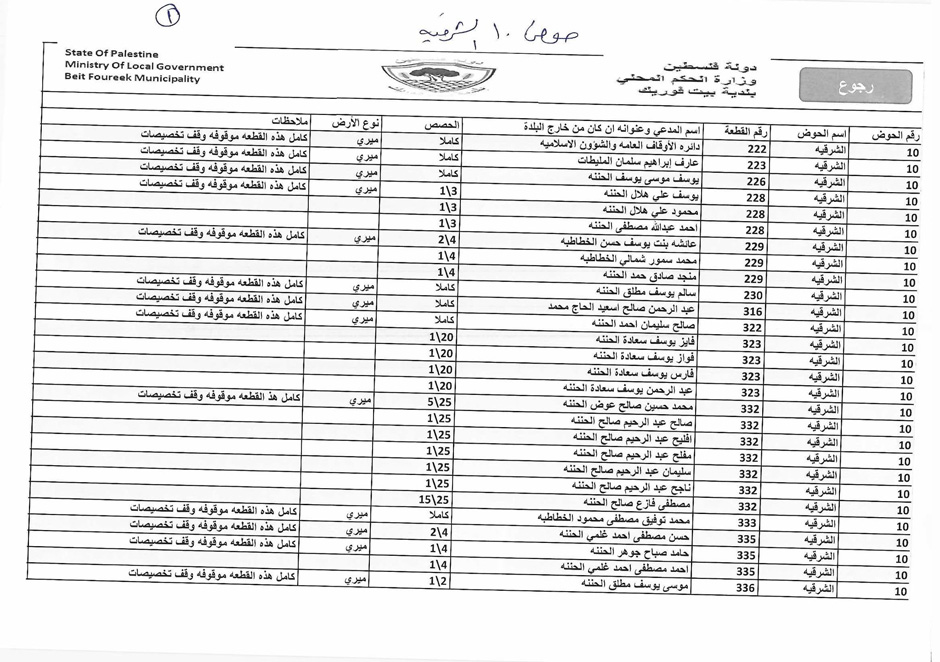 ①
حوض ١٠ الشرقيه
State Of Palestine
Ministry Of Local Government
Beit Foureek Municipality
دولة فلسطين
وزارة الحكم المحلي
بلدية بيت فوريك
رجوع
رقم الحوض اسم الحوض رقم القطعة اسم المدعي وعنوانه ان كان من خارج البلدة الحصص نوع الأرض ملاحظات
10 الشرقيه 222 دائره الأوقاف العامه والشؤون الاسلاميه كاملا ميري كامل هذه القطعه موقوفه وقف تخصيصات
10 الشرقيه 223 عارف إبراهيم سلمان المليطات كاملا ميري كامل هذه القطعه موقوفه وقف تخصيصات
10 الشرقيه 226 يوسف موسى يوسف الحننه كاملا ميري كامل هذه القطعه موقوفه وقف تخصيصات
10 الشرقيه 228 يوسف علي هلال الحننه 1\3 ميري كامل هذه القطعه موقوفه وقف تخصيصات
10 الشرقيه 228 محمود علي هلال الحننه 1\3
10 الشرقيه 228 احمد عبدالله مصطفى الحننه 1\3
10 الشرقيه 229 عائشه بنت يوسف حسن الخطاطبه 2\4 ميري كامل هذه القطعه موقوفه وقف تخصيصات
10 الشرقيه 229 محمد سمور شمالي الخطاطبه 1\4
10 الشرقيه 229 منجد صادق حمد الحننه 1\4
10 الشرقيه 230 سالم يوسف مطلق الحننه كاملا ميري كامل هذه القطعه موقوفه وقف تخصيصات
10 الشرقيه 316 عبد الرحمن صالح اسعيد الحاج محمد كاملا ميري كامل هذه القطعه موقوفه وقف تخصيصات
10 الشرقيه 322 صالح سليمان احمد الحننه كاملا ميري كامل هذه القطعه موقوفه وقف تخصيصات
10 الشرقيه 323 فايز يوسف سعادة الحننه 1\20
10 الشرقيه 323 فواز يوسف سعادة الحننه 1\20
10 الشرقيه 323 فارس يوسف سعادة الحننه 1\20
10 الشرقيه 323 عبد الرحمن يوسف سعادة الحننه 1\20
10 الشرقيه 332 محمد حسين صالح عوض الحننه 5\25 ميري كامل هذ القطعه موقوفه وقف تخصيصات
10 الشرقيه 332 صالح عبد الرحيم صالح الحننه 1\25
10 الشرقيه 332 افليح عبد الرحيم صالح الحننه 1\25
10 الشرقيه 332 مفلح عبد الرحيم صالح الحننه 1\25
10 الشرقيه 332 سليمان عبد الرحيم صالح الحننه 1\25
10 الشرقيه 332 ناجح عبد الرحيم صالح الحننه 1\25
10 الشرقيه 332 مصطفى فازع صالح الحننه 15\25
10 الشرقيه 333 محمد توفيق مصطفى محمود الخطاطبه كاملا ميري كامل هذه القطعه موقوفه وقف تخصيصات
10 الشرقيه 335 حسن مصطفى احمد غلمي الحننه 2\4 ميري كامل هذه القطعه موقوفه وقف تخصيصات
10 الشرقيه 335 حامد صباح جوهر الحننه 1\4 ميري كامل هذه القطعه موقوفه وقف تخصيصات
10 الشرقيه 335 احمد مصطفى احمد غلمي الحننه 1\4
10 الشرقيه 336 موسى يوسف مطلق الحننه 1\2 ميري كامل هذه القطعه موقوفه وقف تخصيصات